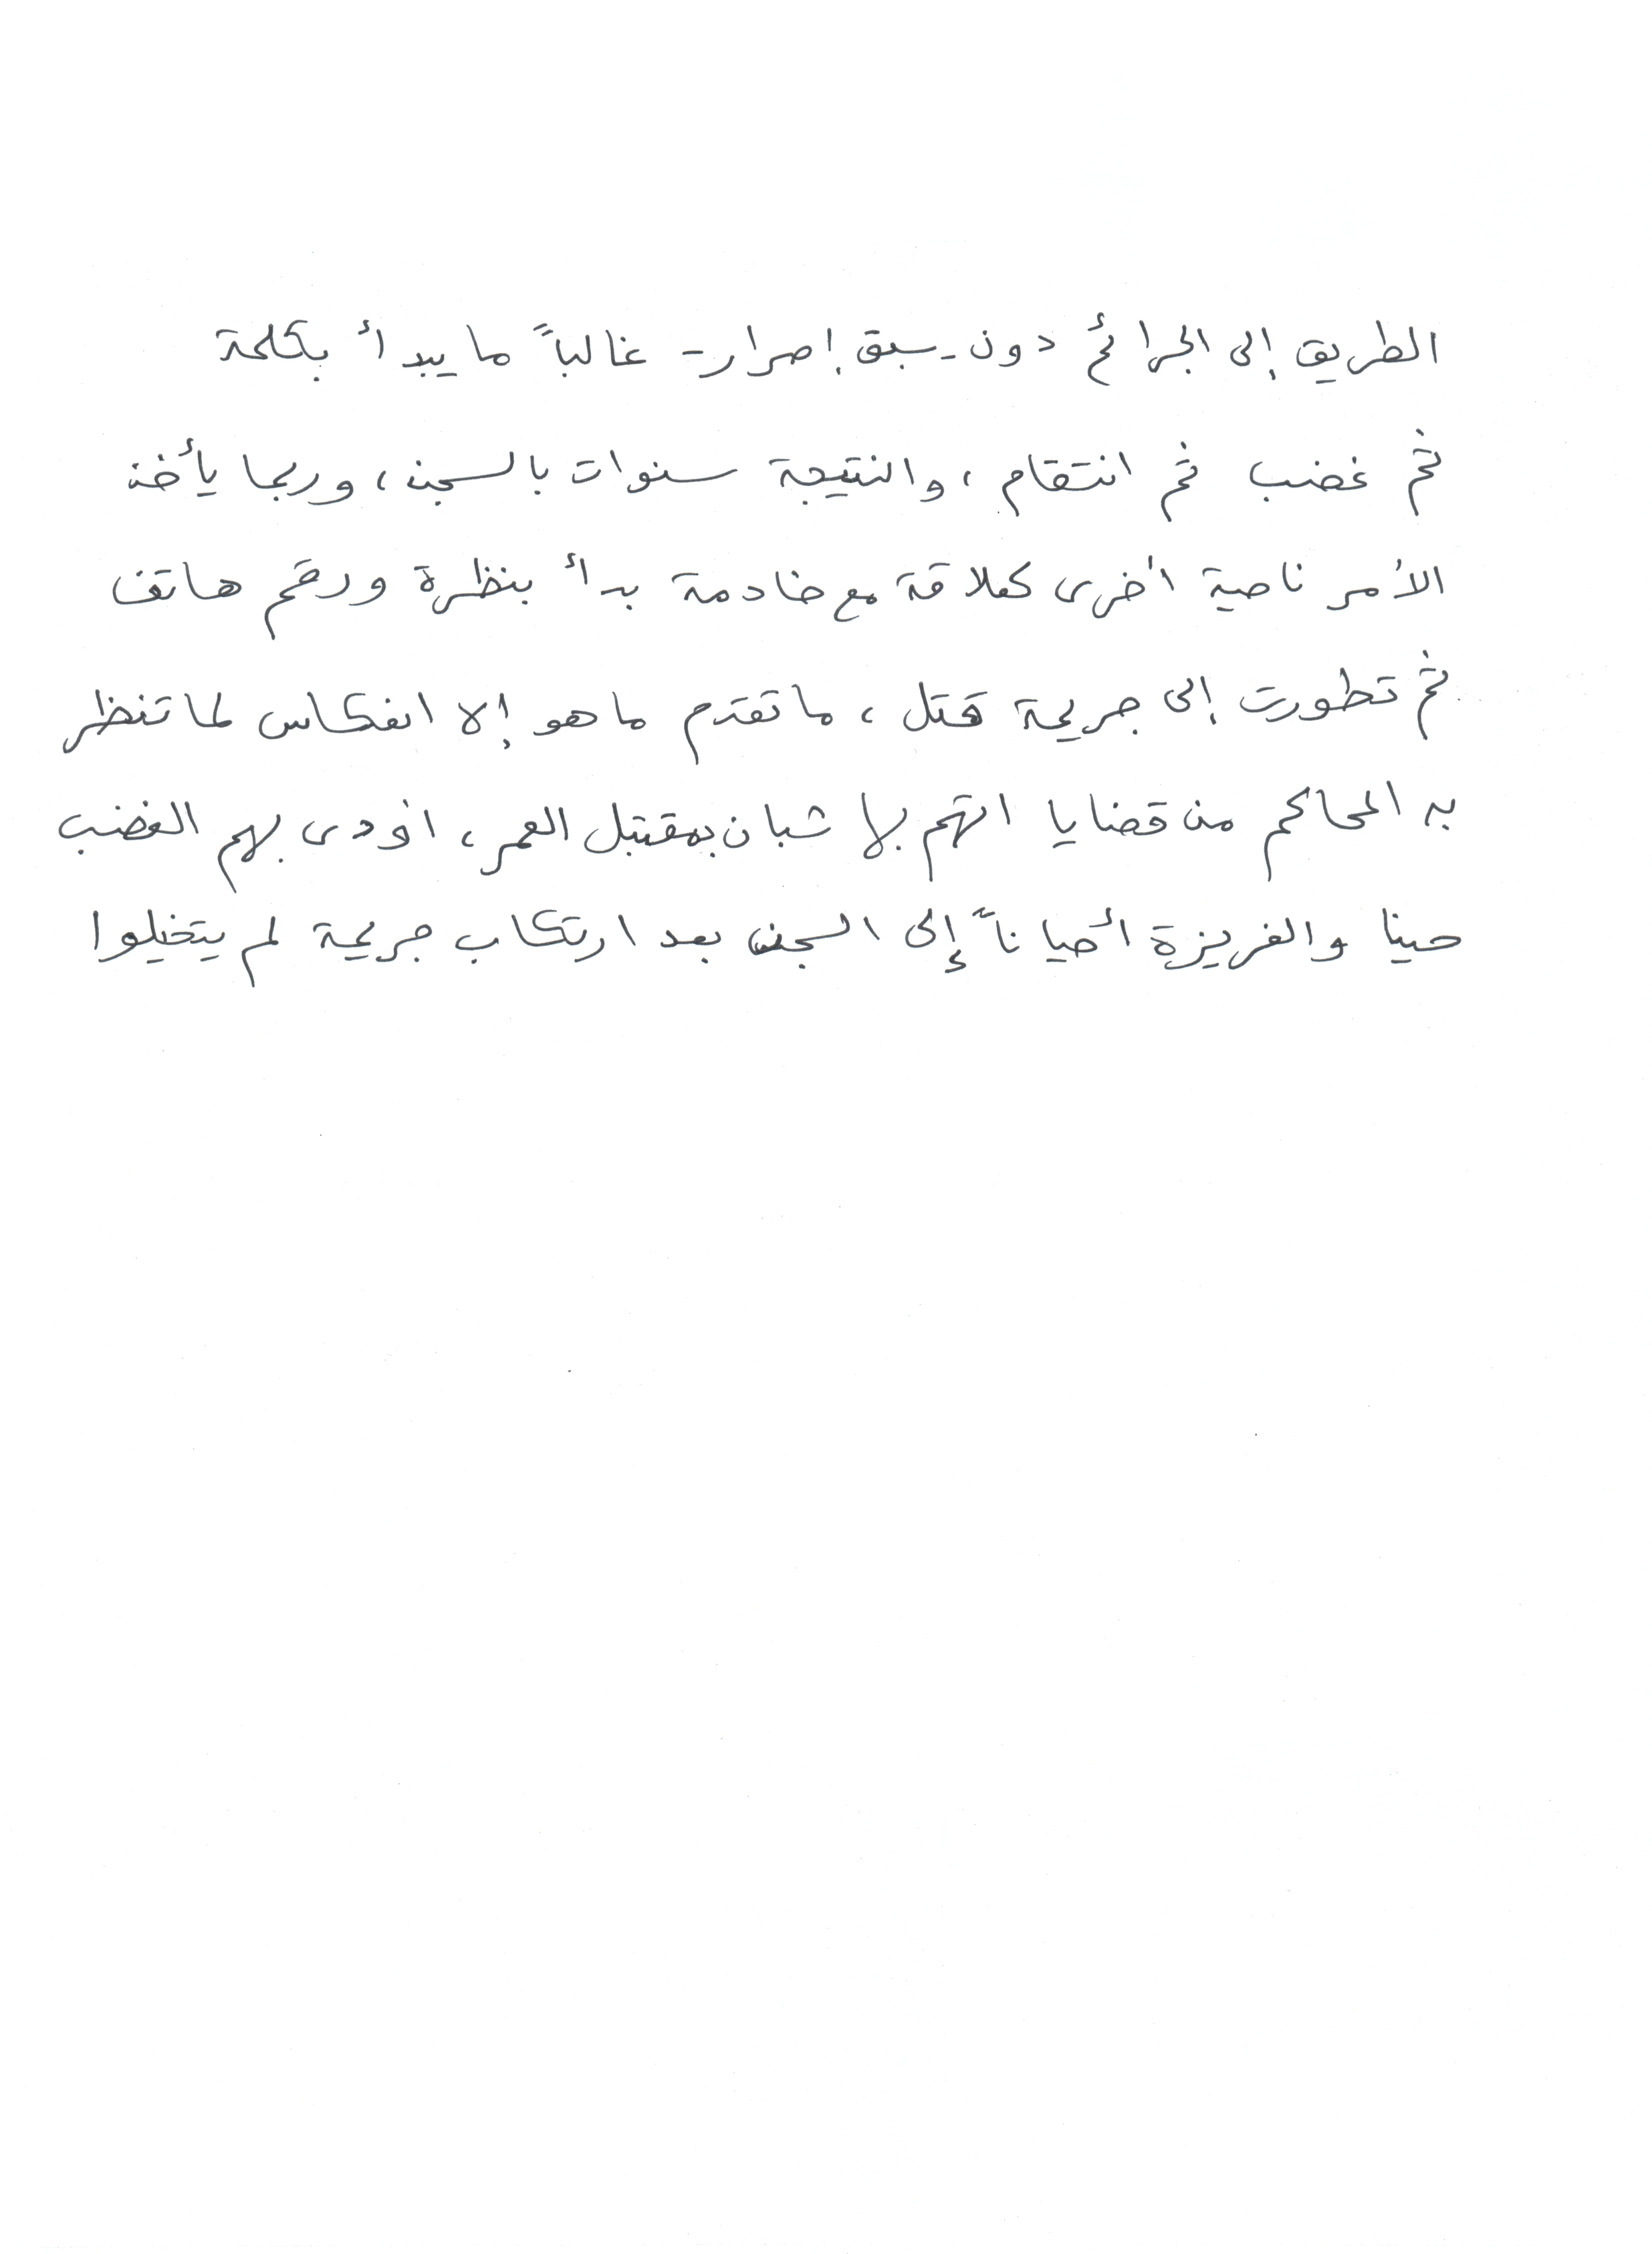 الطريق إلى الجرائم دون - سبق إصرار - غالباً ما يبدأ بكلمة
ثم غضب ثم انتقام، والنتيجة سنوات بالسجن، وربما يأخذ
الأمر ناحية أخرى كعلاقة مع خادمة بدأ بنظرة ورقم هاتف
ثم تطورت إلى جريمة قتل، ما تقدم ما هو إلا انعكاس لما تنظر
به المحاكم من قضايا اتهم بها شبان بمقتبل العمر، أودى بهم الغضب
حينا والغريزة أحياناً إلى السجن بعد ارتكاب جريمة لم يتخيلوا